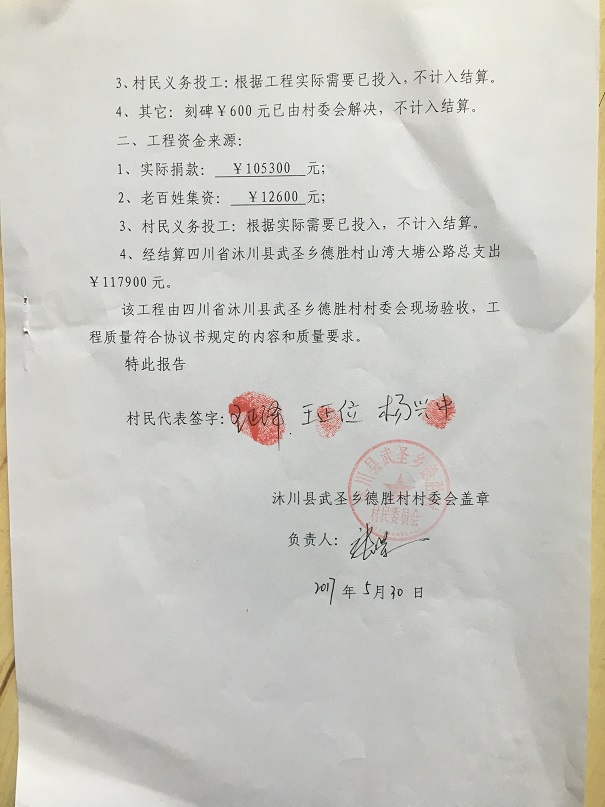 3、村民义务投工：根据工程实际需要已投入，不计入结算。
4、其它：刻碑￥600元已由村委会解决，不计入结算。
二、工程资金来源：
1、实际捐款： ￥105300 元；
2、老百姓集资： ￥12600 元；
3、村民义务投工：根据实际需要已投入，不计入结算。
4、经结算四川省沐川县武圣乡德胜村山湾大塘公路总支出
￥117900元。
该工程由四川省沐川县武圣乡德胜村村委会现场验收，工
程质量符合协议书规定的内容和质量要求。
特此报告
村民代表签字： 王正位 杨兴中
沐川县武圣乡德胜村
村民委员会
沐川县武圣乡德胜村村委会盖章
负责人：
2017年5月30日